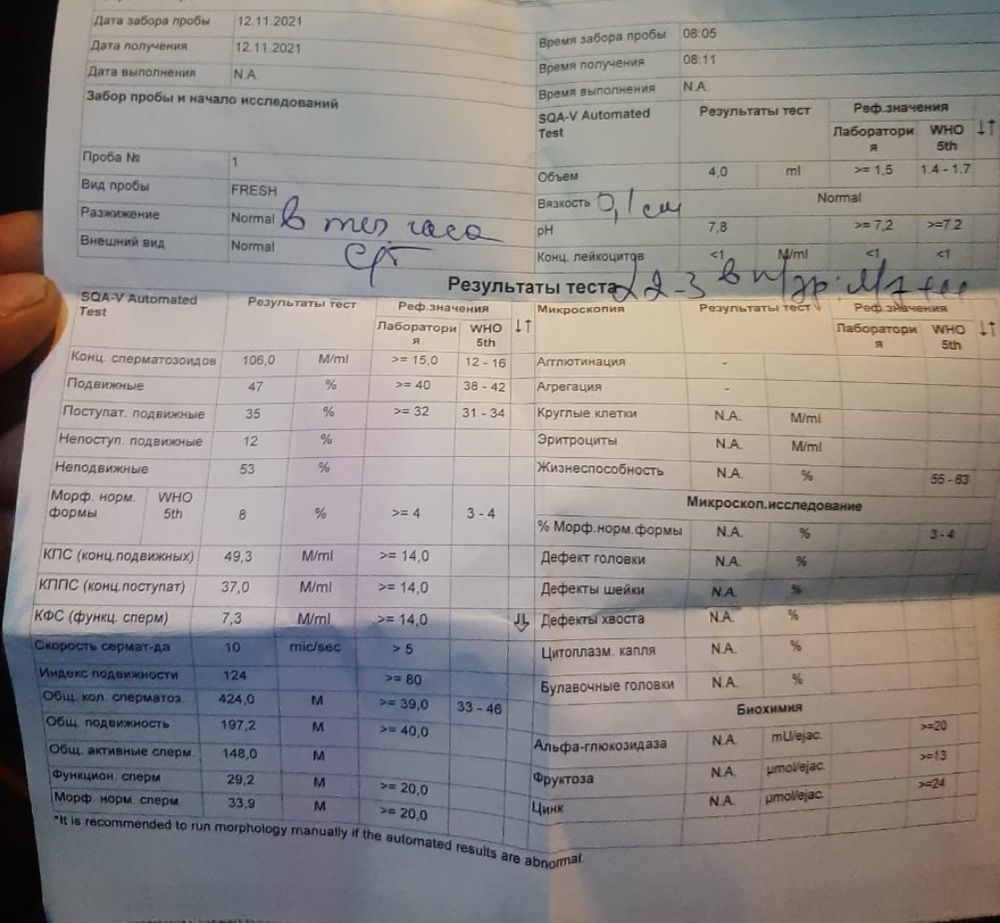 Дата забора пробы 12.11.2021
Дата получения 12.11.2021
Дата выполнения N.A.
Забор пробы и начало исследований
Проба № 1
Вид пробы FRESH
Разжижение Normal в теч часа
Внешний вид Normal
Время забора пробы 08:05
Время получения 08:11
Время выполнения N.A.
SQA-V Automated Test Результаты тест Реф.значения ↓↑
Лаборатория WHO 5th
Объем 4,0 ml >= 1,5 1.4 - 1.7
Вязкость 0,1 см Normal
pH 7,8 >= 7,2 >=7.2
Конц. лейкоцитов <1 M/ml <1 <1
Результаты теста 2-3 в п/зр
SQA-V Automated Test Результаты тест Реф.значения ↓↑
Лаборатория WHO 5th
Конц. сперматозоидов 106,0 M/ml >= 15,0 12 - 16
Подвижные 47 % >= 40 38 - 42
Поступат. подвижные 35 % >= 32 31 - 34
Непоступ. подвижные 12 %
Неподвижные 53 %
Морф. норм. формы WHO 5th 8 % >= 4 3 - 4
КПС (конц.подвижных) 49,3 M/ml >= 14,0
КППС (конц.поступат) 37,0 M/ml >= 14,0
КФС (функц. сперм) 7,3 M/ml >= 14,0 ⇩
Скорость сермат-да 10 mic/sec > 5
Индекс подвижности 124 >= 80
Общ. кол. сперматоз. 424,0 M >= 39,0 33 - 46
Общ. подвижность 197,2 M >= 40,0
Общ. активные сперм. 148,0 M
Функцион. сперм 29,2 M >= 20,0
Морф. норм. сперм. 33,9 M >= 20,0
*It is recommended to run morphology manually if the automated results are abnormal.
Микроскопия Результаты тест Реф.значения ↓↑
Лаборатория WHO 5th
Агглютинация -
Агрегация -
Круглые клетки N.A. M/ml
Эритроциты N.A. M/ml
Жизнеспособность N.A. % 55 - 63
Микроскоп.исследование
% Морф.норм.формы N.A. % 3 - 4
Дефект головки N.A. %
Дефекты шейки N.A. %
Дефекты хвоста N.A. %
Цитоплазм. капля N.A. %
Булавочные головки N.A. %
Биохимия
Альфа-глюкозидаза N.A. mU/ejac. >=20
Фруктоза N.A. µmol/ejac. >=13
Цинк N.A. µmol/ejac. >=24